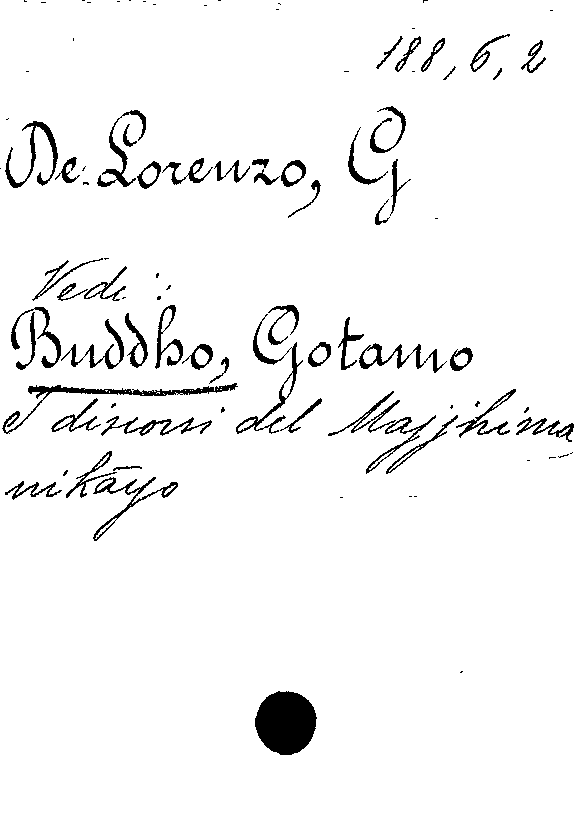 188, 6, 2
De Lorenzo, G
Vedi:
Buddho, Gotamo
I discorsi del Majjhima
nikāyo